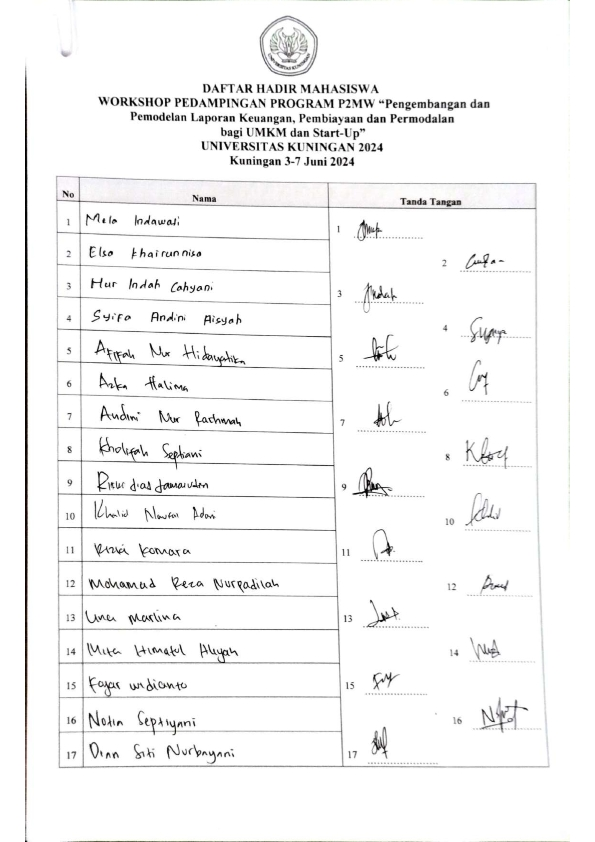 UNIVERSITAS KUNINGAN
DAFTAR HADIR MAHASISWA
WORKSHOP PEDAMPINGAN PROGRAM P2MW “Pengembangan dan
Pemodelan Laporan Keuangan, Pembiayaan dan Permodalan
bagi UMKM dan Start-Up”
UNIVERSITAS KUNINGAN 2024
Kuningan 3-7 Juni 2024
No Nama Tanda Tangan
1 Mela Indawati 1
2 Elsa Khairunnisa 2
3 Nur Indah Cahyani 3
4 Syifa Andini Aisyah 4
5 Afifah Nur Hidayatika 5
6 Azka Halima 6
7 Andini Nur Rachmah 7
8 Kholifah Septiani 8
9 9
10 Khalid 10
11 Rizki Komara 11
12 Mohamad Reza Nurpadilah 12
13 Una Marlina 13
14 Mita Himatul Aliyah 14
15 Fajar widianto 15
16 Notia Septiyani 16
17 Dian Siti Nurbayani 17